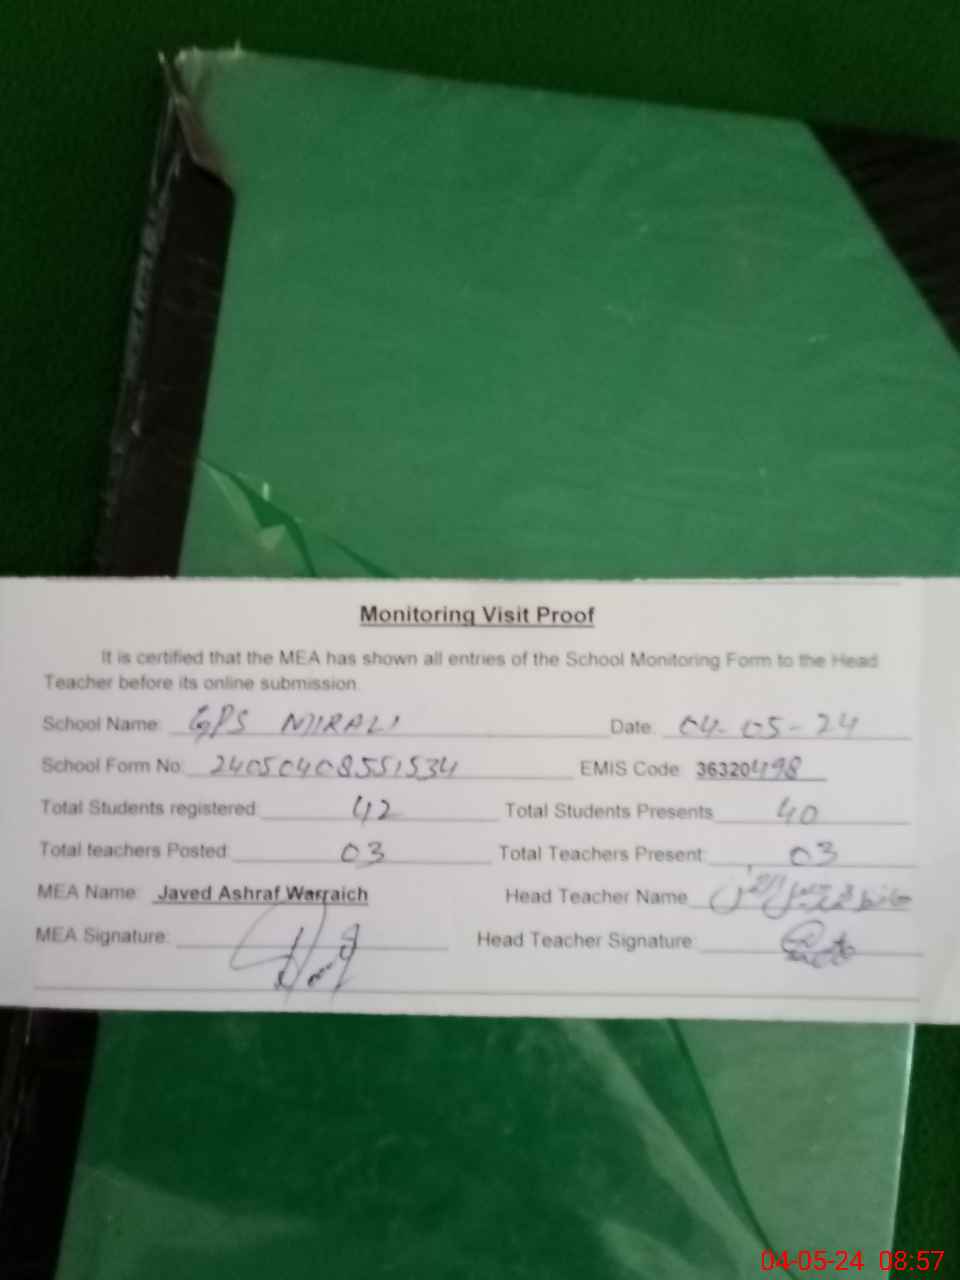 Monitoring Visit Proof
It is certified that the MEA has shown all entries of the School Monitoring Form to the Head
Teacher before its online submission.
School Name: GPS MIRALI Date: 04-05-24
School Form No: 24050408551534 EMIS Code: 36320498
Total Students registered: 42 Total Students Presents 40
Total teachers Posted: 03 Total Teachers Present: 03
MEA Name: Javed Ashraf Warraich Head Teacher Name
MEA Signature: Head Teacher Signature:
04-05-24 08:57